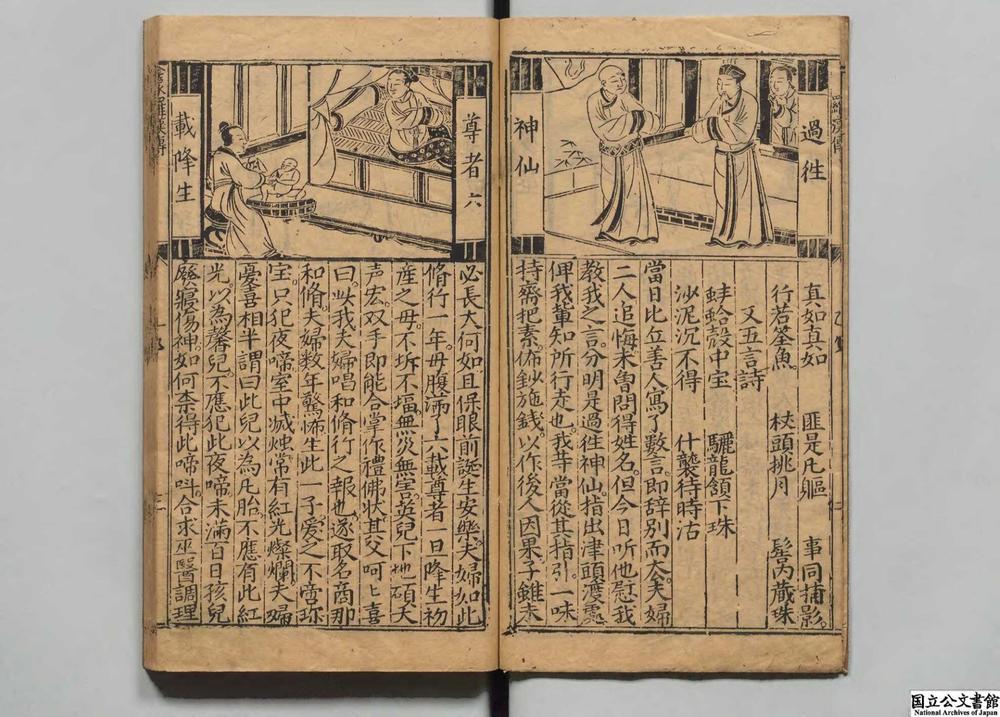 過徃
神仙
真如真如　匪是凡軀　事同捕影
行若筌魚　杖頭挑月　髻丙蔵珠
又五言詩
蚌蛤殼中宝　驪龍頷下珠
沙泥沉不得　什襲待時沽
當日比丘善人寫了數言即辞別而去夫婦
二人追悔未曽問得姓名但今日听他慰我
教我之言分明是過徃神仙指出津頭渡處
俾我輩知所行走也我等當從其指引一味
持齋把素佈鈔施錢以作後人因果子雖未
尊者六
載降生
必長大何如且保眼前誕生安樂夫婦如此
脩行一年毋腹滿了六載尊者一旦降生初
産之毋不坼不堛無災無害孩兒下地碩大
声宏双手即能合掌作禮佛狀其父呵呵喜
曰此我夫婦唱和脩行之報也遂取名商那
和脩夫婦数年驚怖生此一子爱之不啻珎
宝只犯夜啼室中滅燭常有紅光燦爛夫婦
憂喜相半謂曰此兒以為凡胎不應有此紅
光以為馨兒不應犯此夜啼未滿百日孩兒
廢寢傷神如何柰得此啼呌合求巫醫調理
国立公文書館
National Archives of Japan